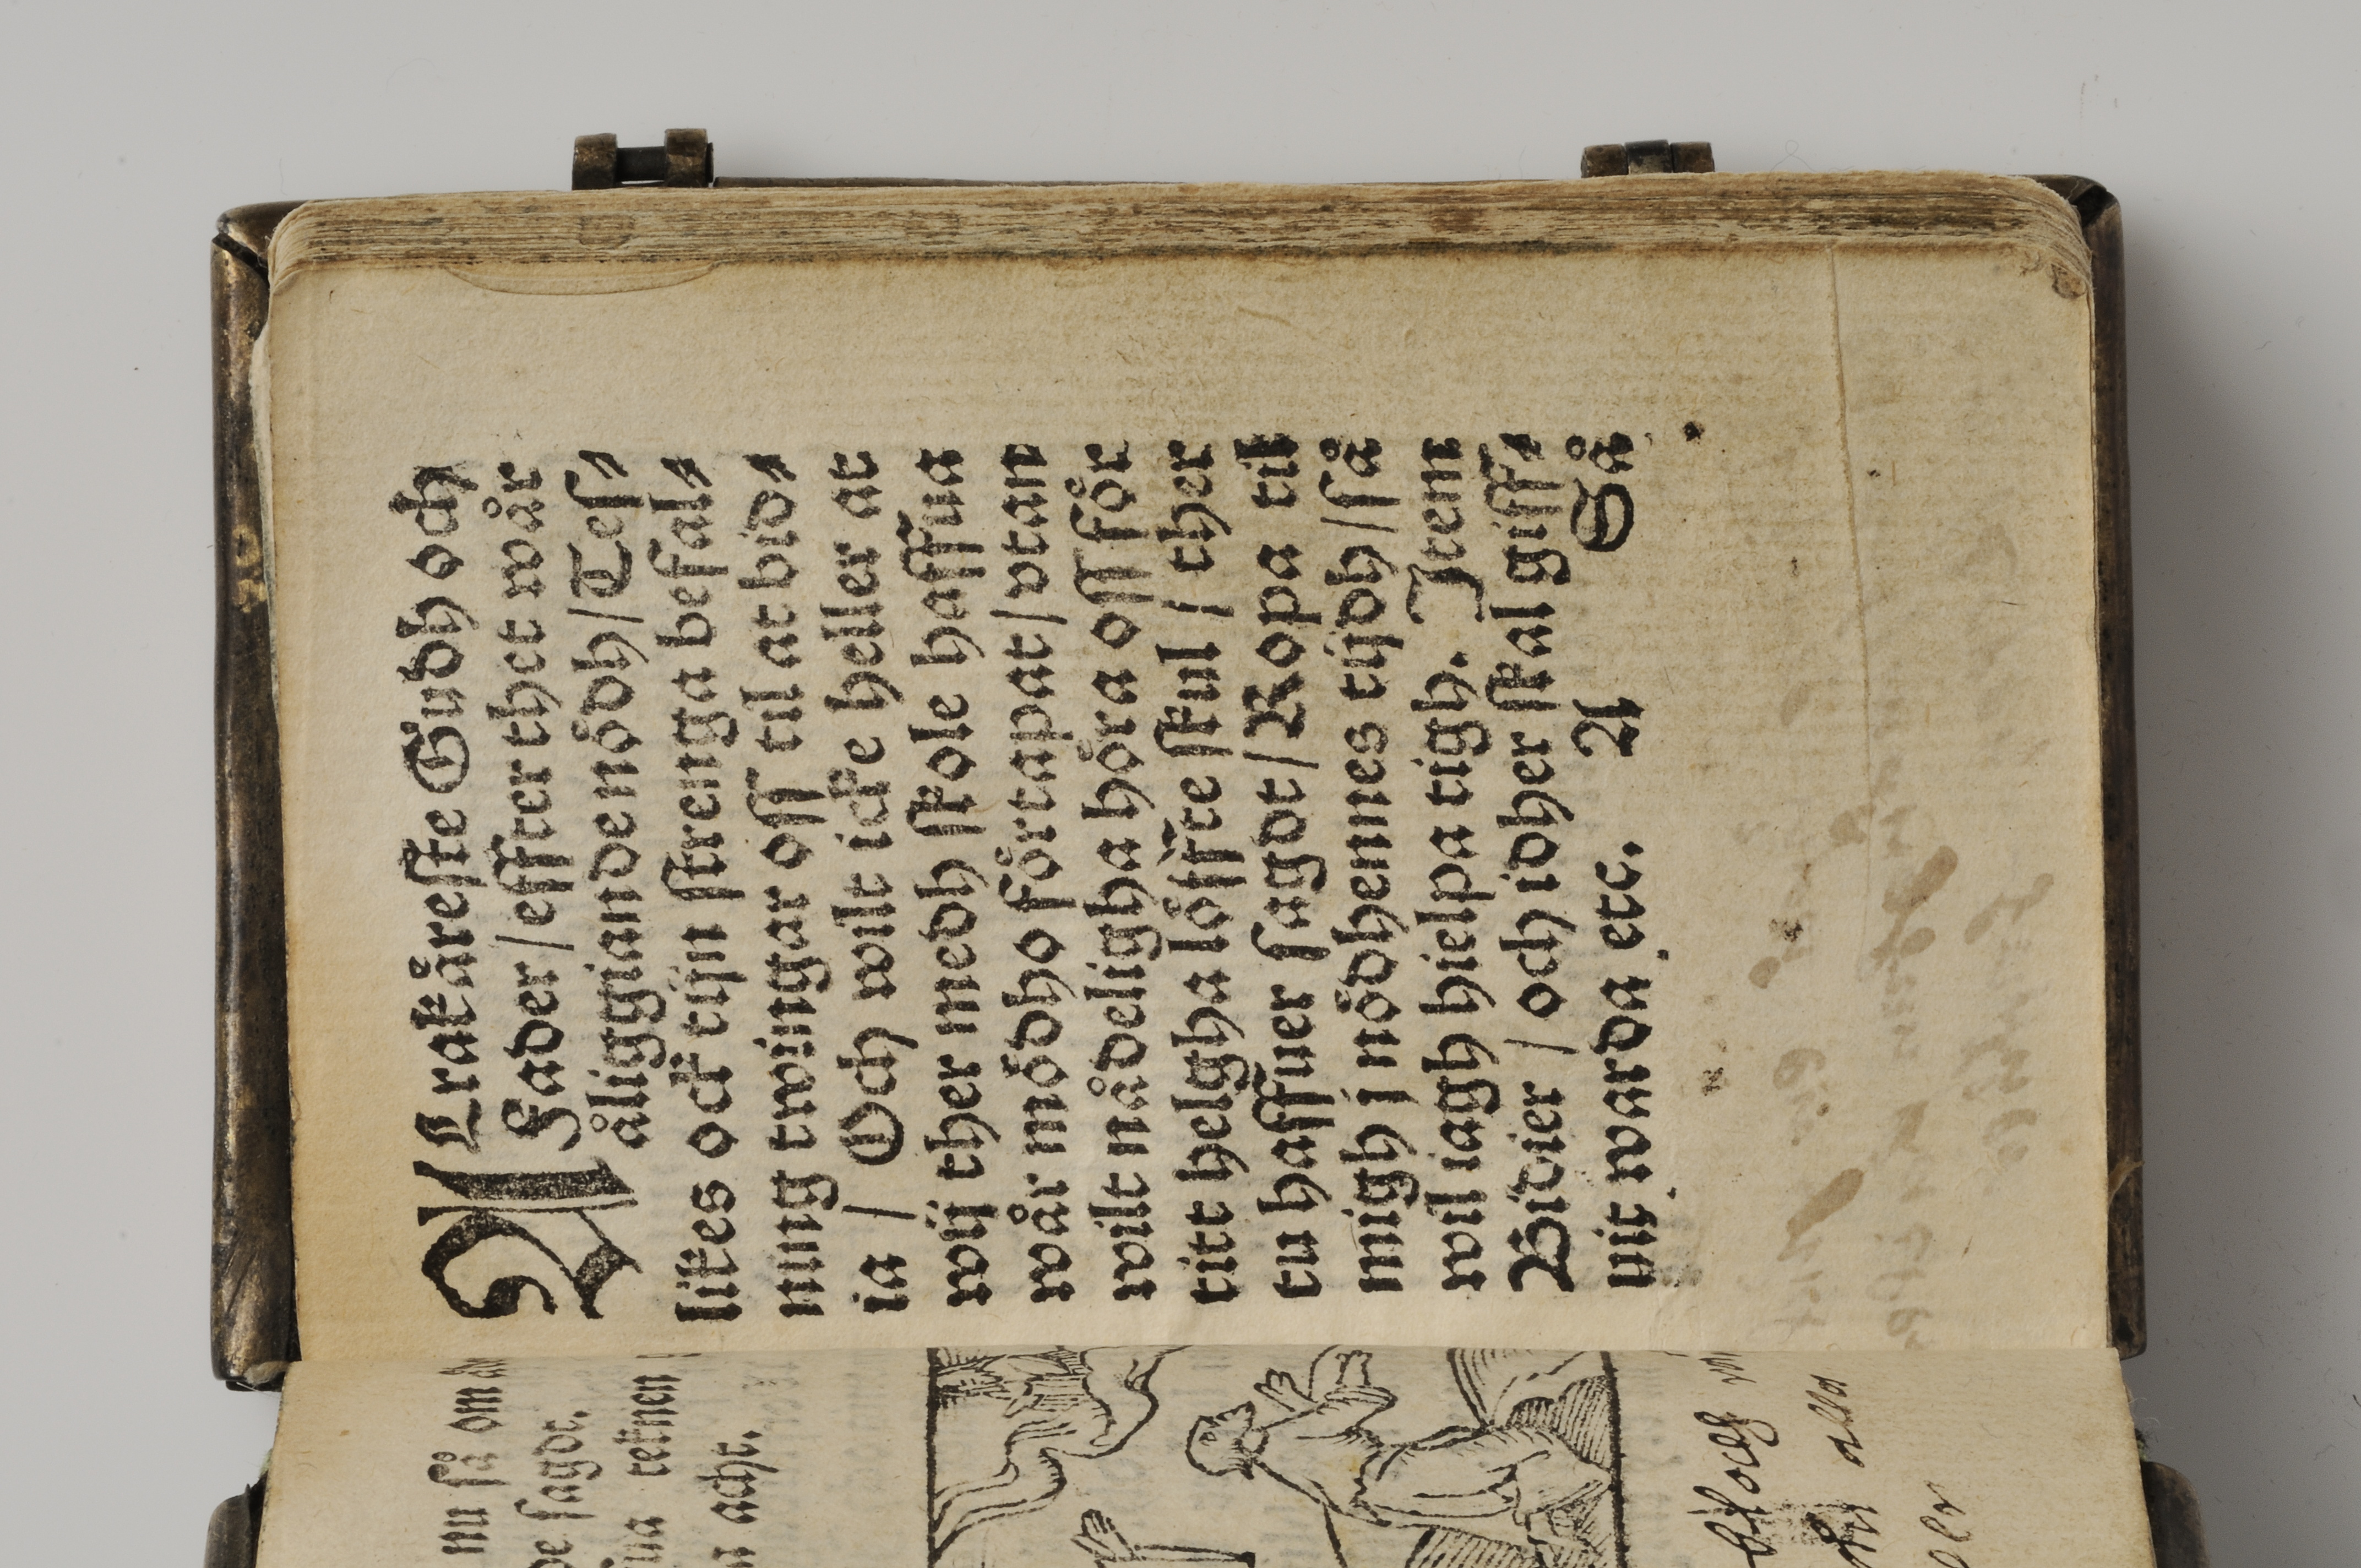 nu så om
de sagdt.
reknen
acht.
ALrakåreste Gudh och
Fader / effter thet wår
åliggiande nödh / Tess⸗
likes ock tijn strenga befal⸗
ning twingar oss til at bid⸗
ia / Och wilt icke heller at
wij ther medh skole haffua
wår mödho förtapat / vtan
wilt nådeligha höra oss för
titt helgha löffte skul / ther
tu haffuer sagdt / Ropa til
migh j nödhennes tijdh / så
wil iagh hielpa tigh. Item
Bidier / och idher skal giff⸗
uit warda etc. A Så